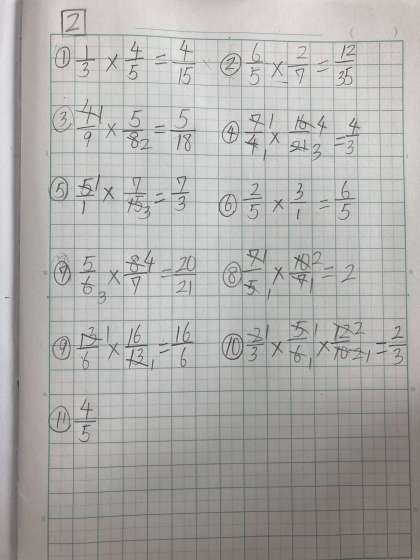 2
① 1/3 × 4/5 = 4/15 ② 6/5 × 2/7 = 12/35
③ 4 1/9 × 5/8 2 = 5/18 ④ 7 1/4 1 × 16 4/21 3 = 4/3
⑤ 5 1/1 × 7/15 3 = 7/3 ⑥ 2/5 × 3/1 = 6/5
⑦ 5/6 3 × 8 4/7 = 20/21 ⑧ 7 1/5 1 × 10 2/7 1 = 2
⑨ 13 1/6 × 16/13 1 = 16/6 ⑩ 2 1/3 × 5 1/6 1 × 12 2/10 2 1 = 2/3
⑪ 4/5